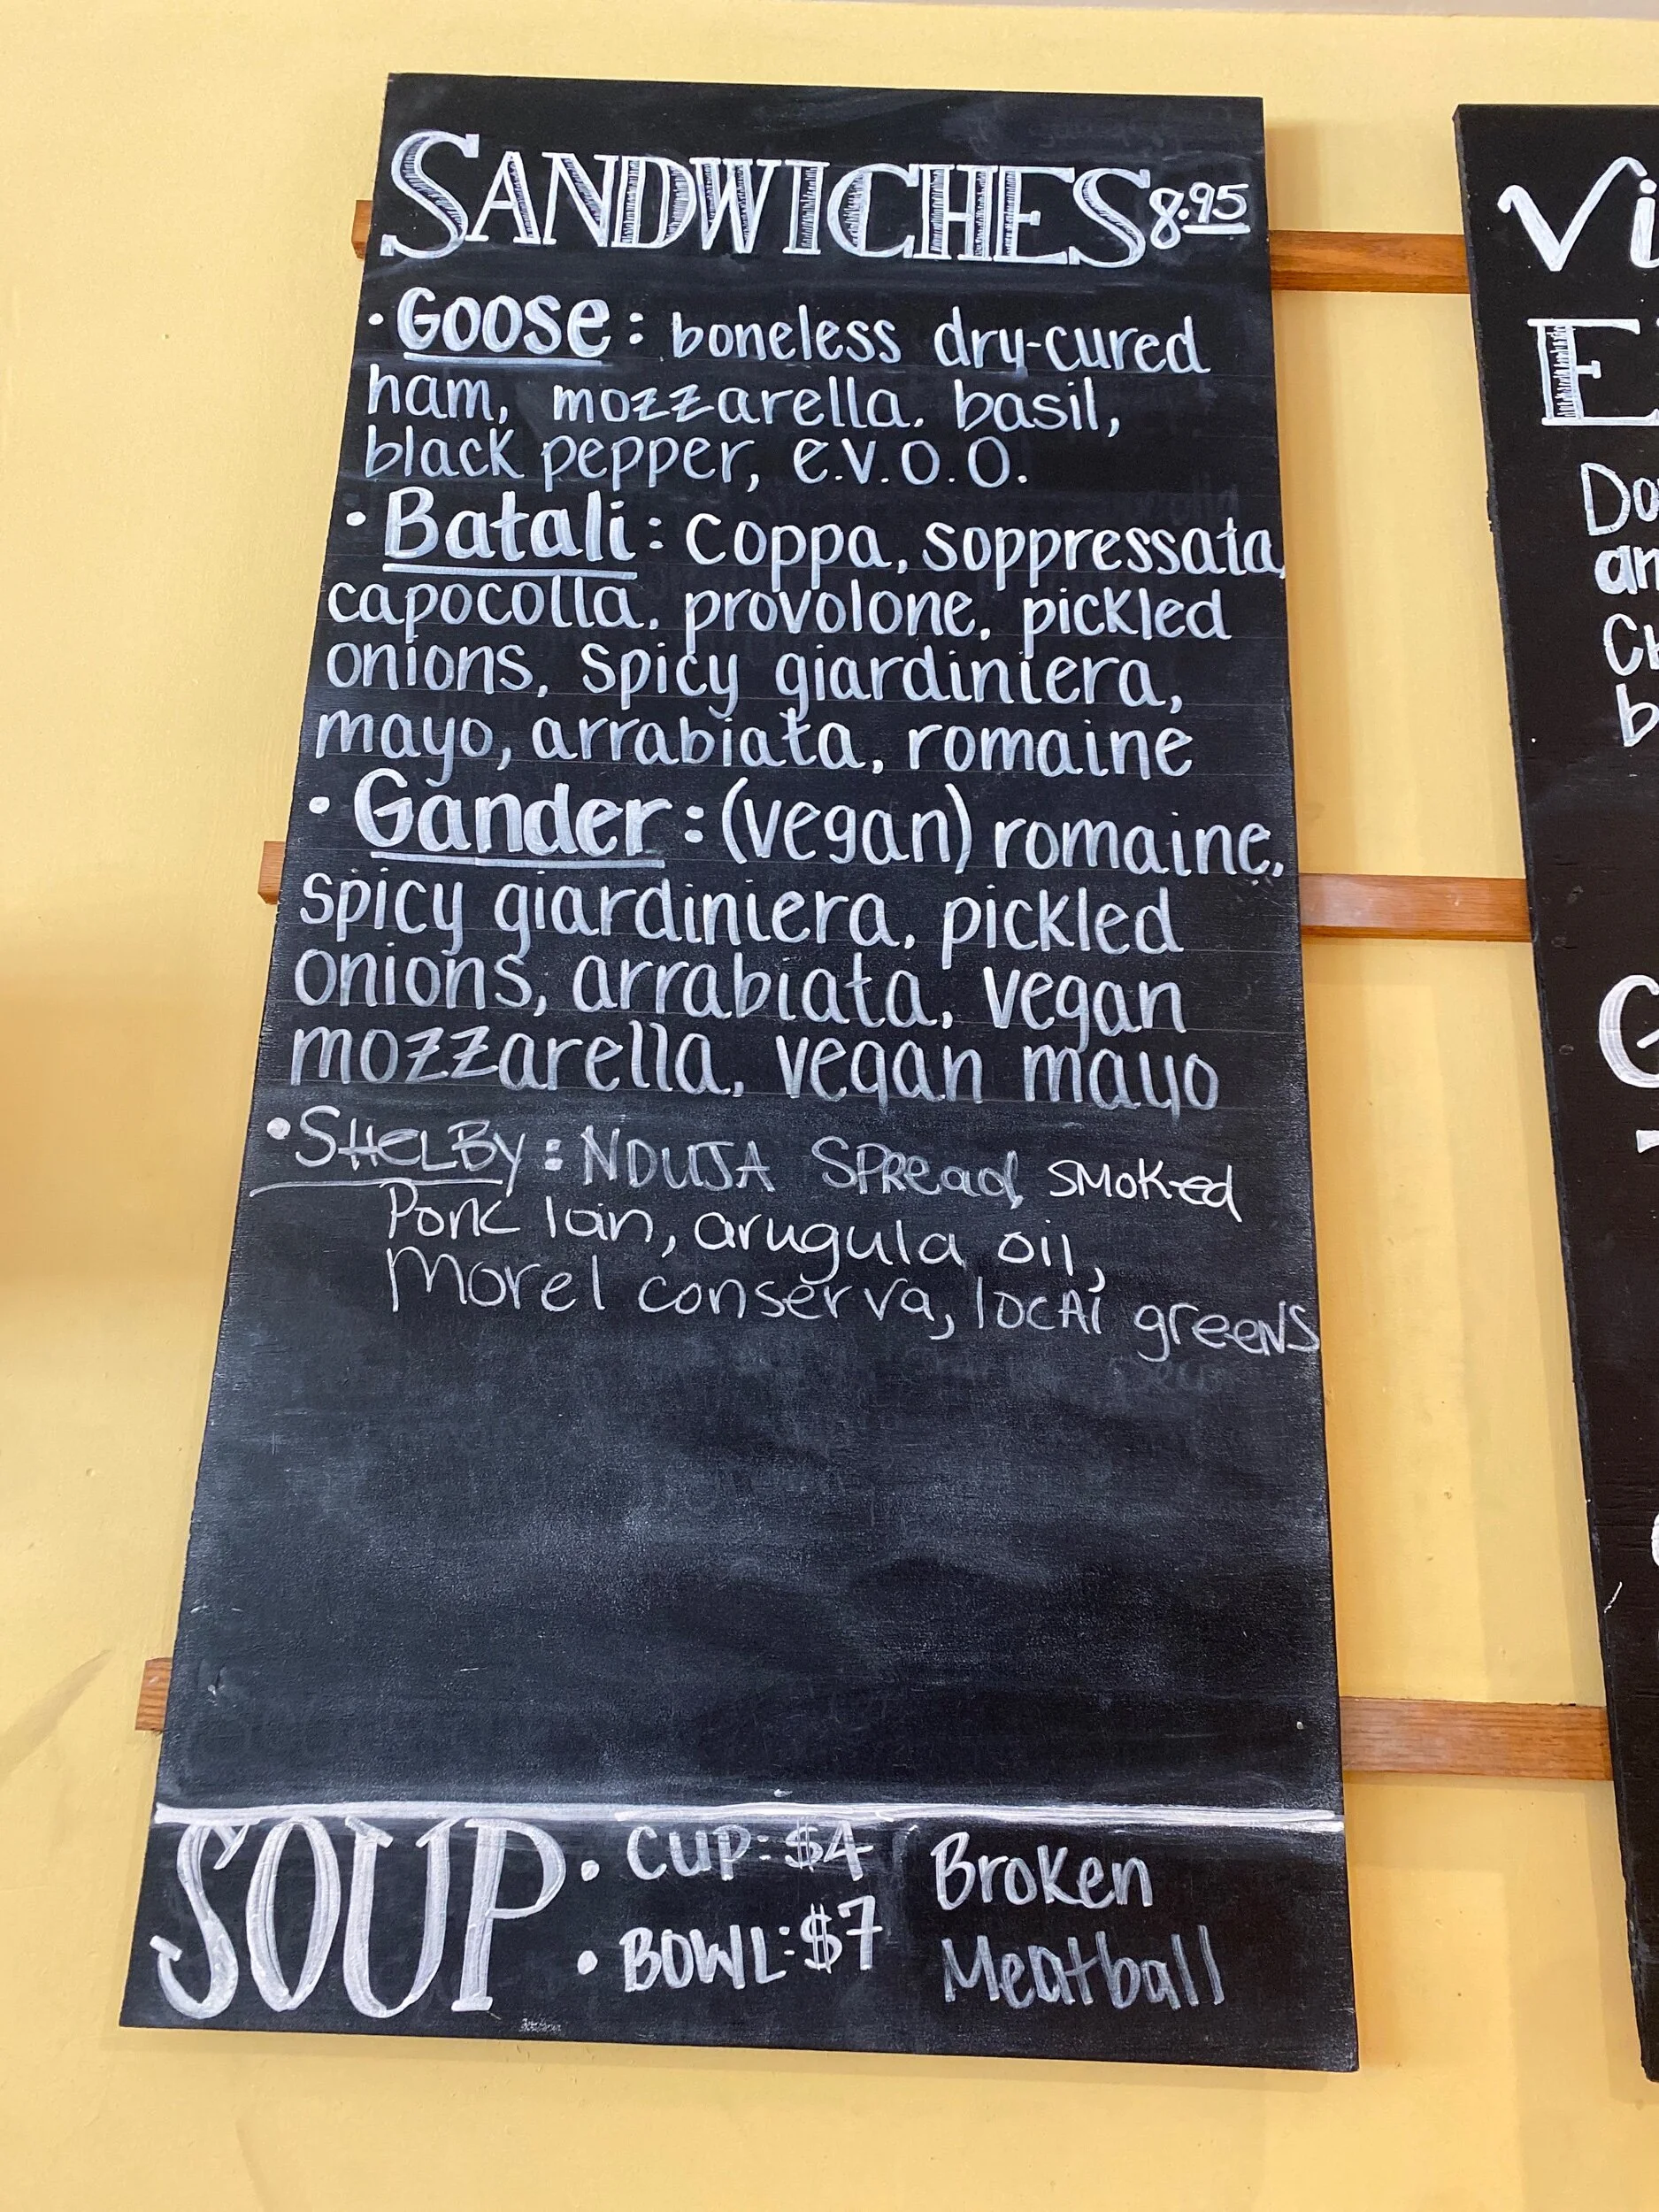 SANDWICHES 8.95
• Goose: boneless dry-cured
ham, mozzarella, basil,
black pepper, e.v.o.o.
• Batali: coppa, soppressata,
capocolla, provolone, pickled
onions, spicy giardiniera,
mayo, arrabiata, romaine
• Gander: (vegan) romaine,
spicy giardiniera, pickled
onions, arrabiata, vegan
mozzarella, vegan mayo
• SHeLBy: NDUJA SPRead, SMoKed
Pork loin, arugula oil,
Morel conserva, locAl greeNS
SOUP • CUP: $4
• BOWL: $7
Broken
Meatball
Vi
E
Do
an
Ch
b
G